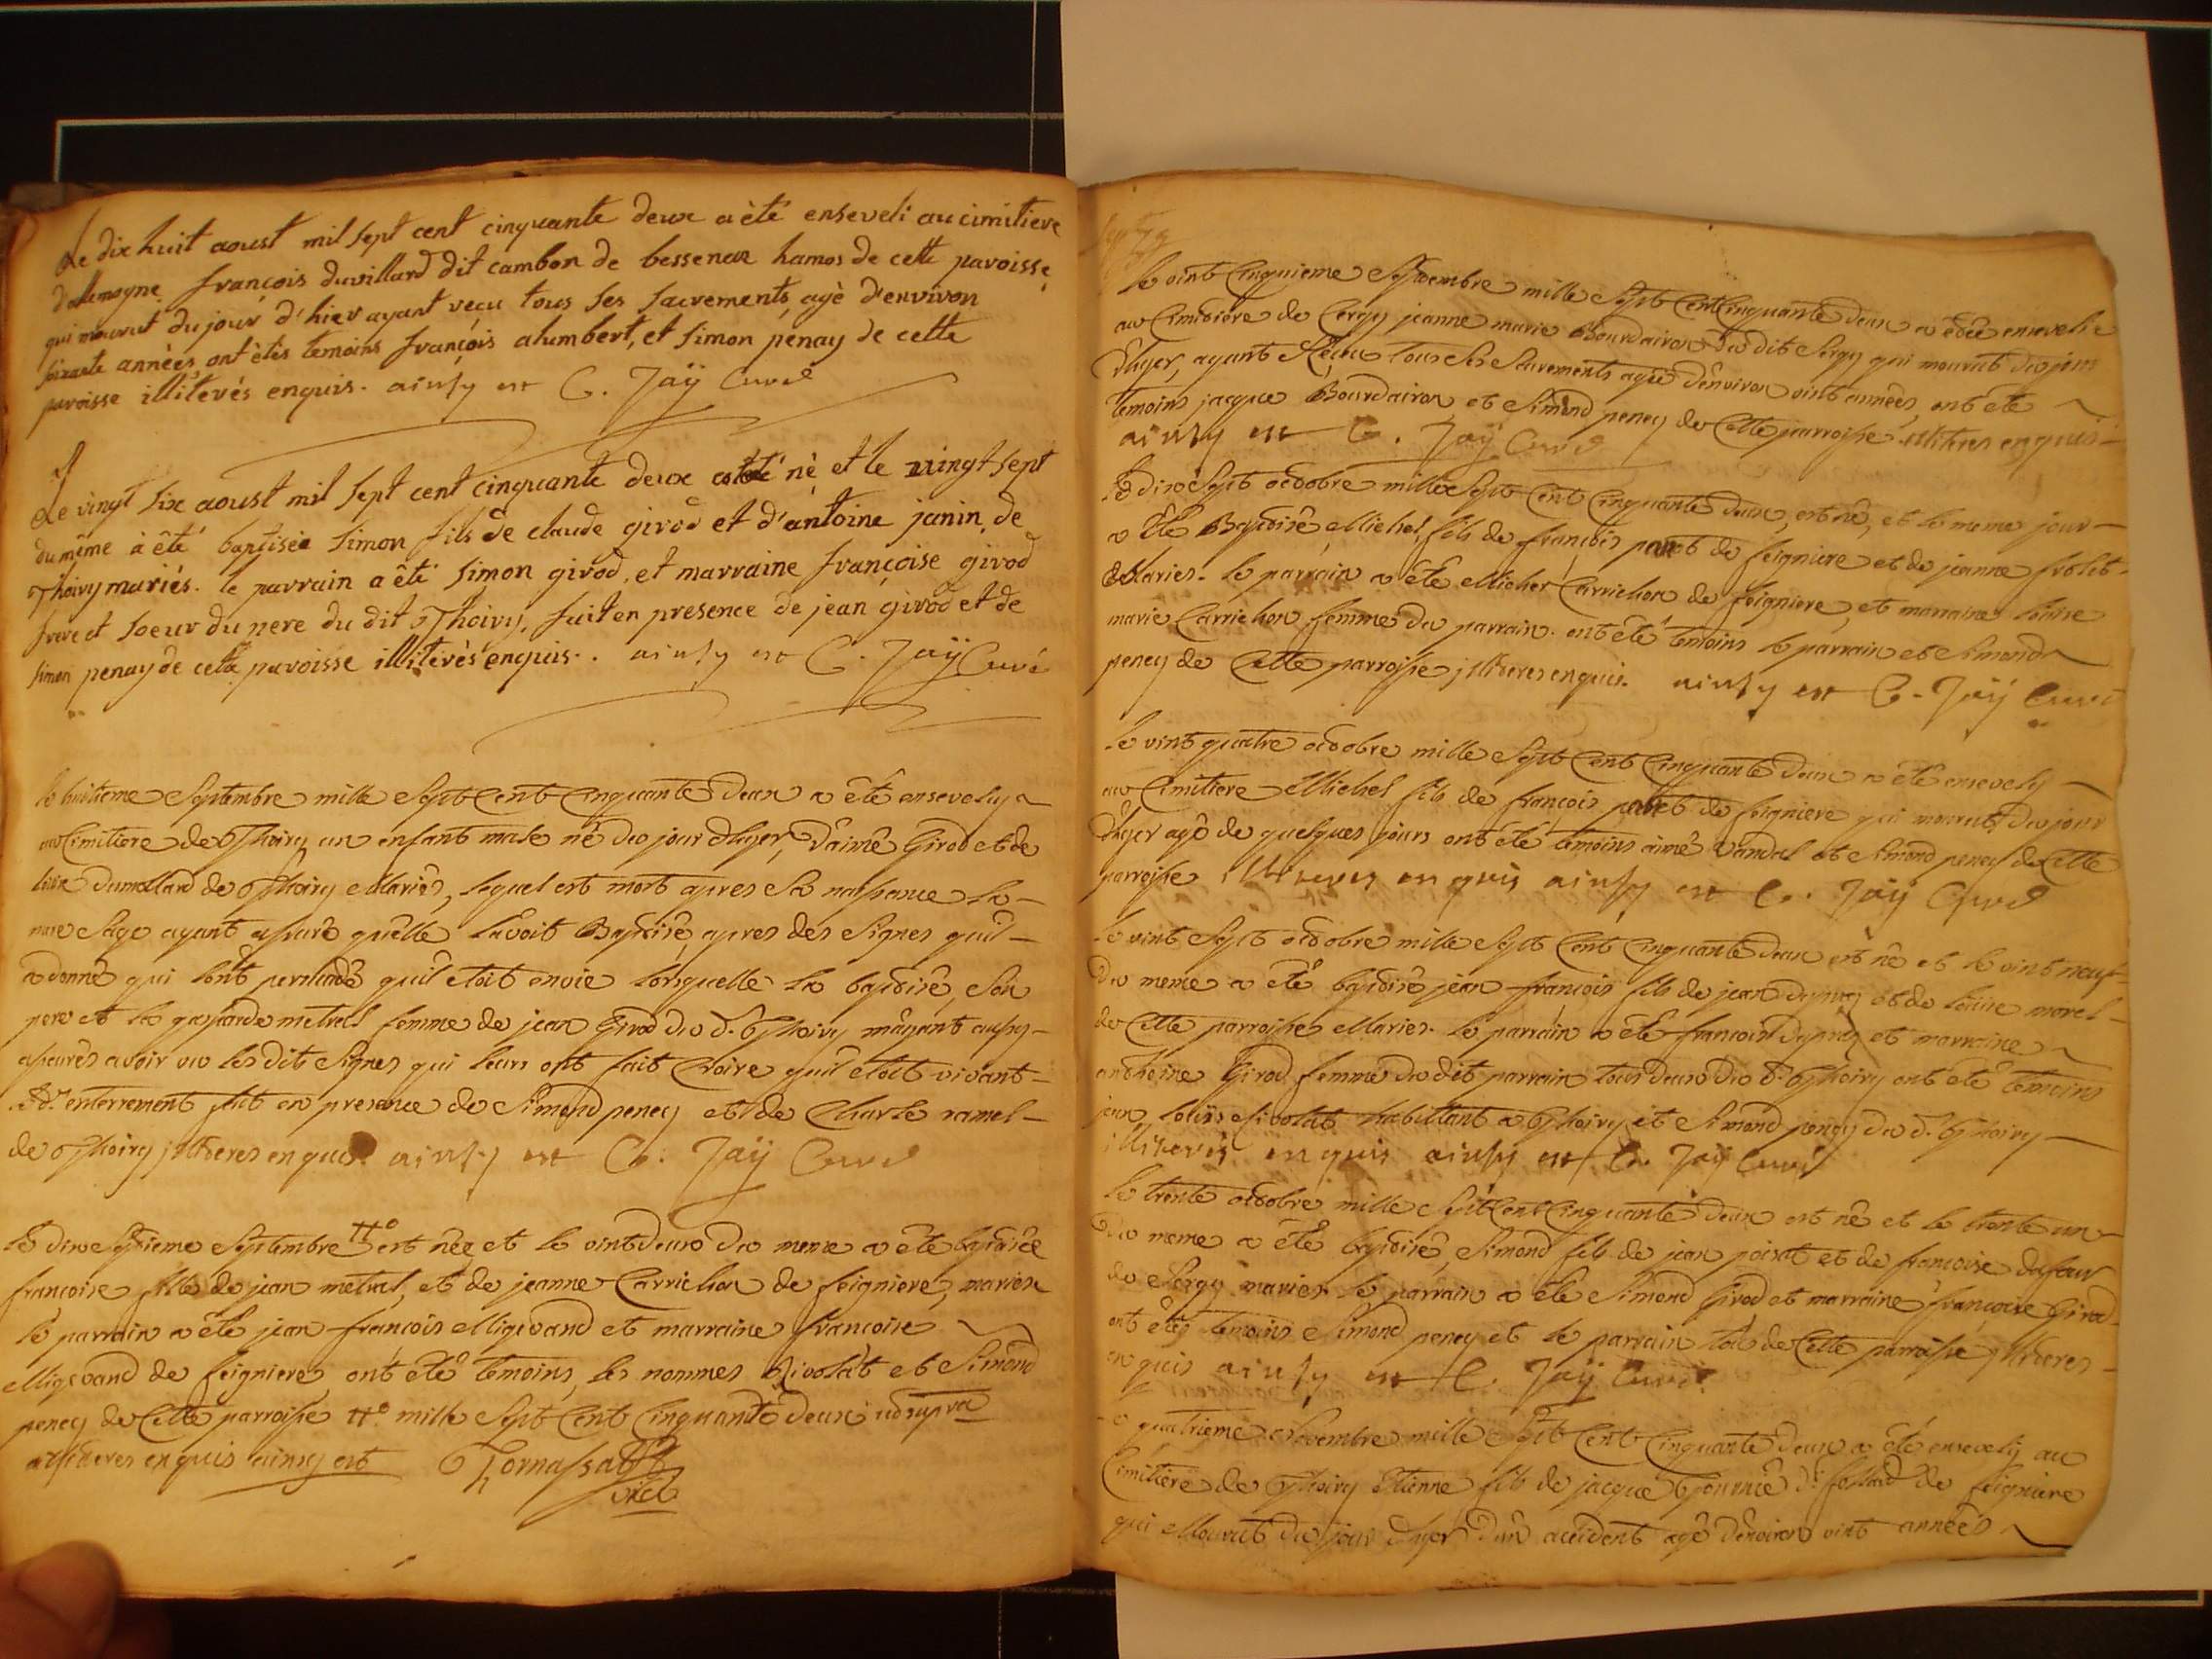 Le dix huit aoust mil sept cent cinquante deux a èté enseveli au cimitiere
d'allemogne françois duvillard dit cambon de bessenex hamos de cette paroisse
qui mourut du jour d'hier ayant reçu tous ses sacrements, agè d'environ
soixante années, ont étés temoins françois alumbert, et simon penay de cette
paroisse illiterés enquis. ainsy est C. Jaÿ Curé
Le vingt six aoust mil sept cent cinquante deux né et le vingt sept
du même à êté baptisé simon fils de claude girod et d'antoine janin de
Thoiry mariés. le parrain a êté simon girod, et marraine françoise girod
frere et soeur du pere du dit Thoiry, fait en presence de jean girod et de
simon penay de cette paroisse illiterés enquis.. ainsy est C. Jaÿ Curé
le huitieme septembre mille sept cent cinquante deux a êté ensevely
au cimitiere de Thoiry un enfant male né du jour d'hyer, d'aimé Girod et de
dumollard de Thoiry Mariés, lequel est mort apres sa naissance la
mere sage ayant assuré qu'elle l'avoit Baptisé, apres des signes quil
a donné qui l'ont persuadé qu'il etoit envie lorsquelle la baptisé, son
pere et la gasparde metral femme de jean Girod du d. Thoiry m'ayant aussy
asseurés avoir vu les dit signes qui leurs ont fait croire quil etoit vivant
d. enterrement fait en presence de Simond peney et de Charle ramel
de Thoiry jlliteres enquis. ainsy est C. Jaÿ Curé
le dixseptieme septembre tt° est née et le vintdeux du meme a êté baptisée
françoise fille de jean metral, et de jeanne Carrichon de feigniere, mariés
le parrain a êté jean françois Migevand et marraine françoise
Migevand de feigniere, ont êté temoins, les nommes et Simond
peney de Cette parroisse tt° mille sept Cent Cinquante deux ud supra
jlliteres enquis ainsy est Tornassat
vice
le vint cinquieme septembre mille sept Cent Cinquante deux a êtée ensevelie
au Cimitiere de Sergy jeanne marie Bourdairon du dit Sergy qui mourut du jour
d'hyer, ayant reçeu tous ses sacrements agée d'environ vint années, ont êté
temoins jacque Bourdairon et Simond peney de Cette parroisse illiteres enquis
ainsy est C. Jaÿ Curé
Le dixsept octobre mille sept Cent Cinquante deux, est né, et le meme jour
a êté Baptisé, Michel, fils de françois de feigniere et de jeanne
Mariés. le parrain a êté Michel Carrichon de feigniere, et marraine
marie Carrichon femme du parrain. ont êté temoins le parrain et Simond
peney de Cette parroisse jlliteres enquis. ainsy est C. Jaÿ Curé
le vint quatre octobre mille sept Cent Cinquante deux a êté ensevely
au Cimitiere Michel fils de françois de feigniere qui mourut du jour
d'hyer agé de quelques jours ont êté temoins aimé Vandal et Simond peney de Cette
parroisse illiteres enquis ainsy est C. Jaÿ Curé
le vint sept octobre mille sept Cent Cinquante deux est né et le vint neuf
du meme a êté baptisé jean françois fils de jean et de morel
de Cette parroisse Mariés. le parrain a êté françois et marraine
anthoine Girod femme du dit parrain tous deux du d. Thoiry ont êté temoins
jean habittant a Thoiry et Simond peney du d. Thoiry
illiterés enquis ainsy est C. Jaÿ Curé
le trente octobre mille sept Cent Cinquante deux est né et le trente un
du meme a êté baptisé, Simond fils de jean poirat et de françoise dufour
de Sergy mariés. le parrain a êté Simond Girod et marraine françoise Girod
ont êtés temoins Simond peney et le parrain tous de Cette parroisse jlliteres
enquis ainsy est C. Jaÿ Curé
le quatrieme Novembre mille sept Cent Cinquante deux a êté ensevely au
Cimitiere de Thoiry Etienne fils de jacque de feigniere
qui Mourut du jour d'hyer d'un accident agé d'environ vint années